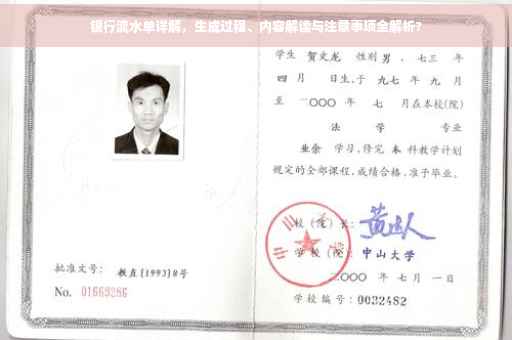 银行流水单详解，生成过程、内容解读与注意事项全解析？
学生 贺文龙 性别 男 、七三 年
四 月 日生,于 九七 年 九 月
至 二〇〇〇 年 七 月在本校(院)
法 学 专业
业余 学习,修完 本 科教学计划
规定的全部课程,成绩合格,准予毕业。
校 (院) 长:
学 校 (院): 中山大学
二〇〇〇 年 七 月 一 日
批准文号: 教直[1993]8号
No. 01669286
学校编号: 0032482